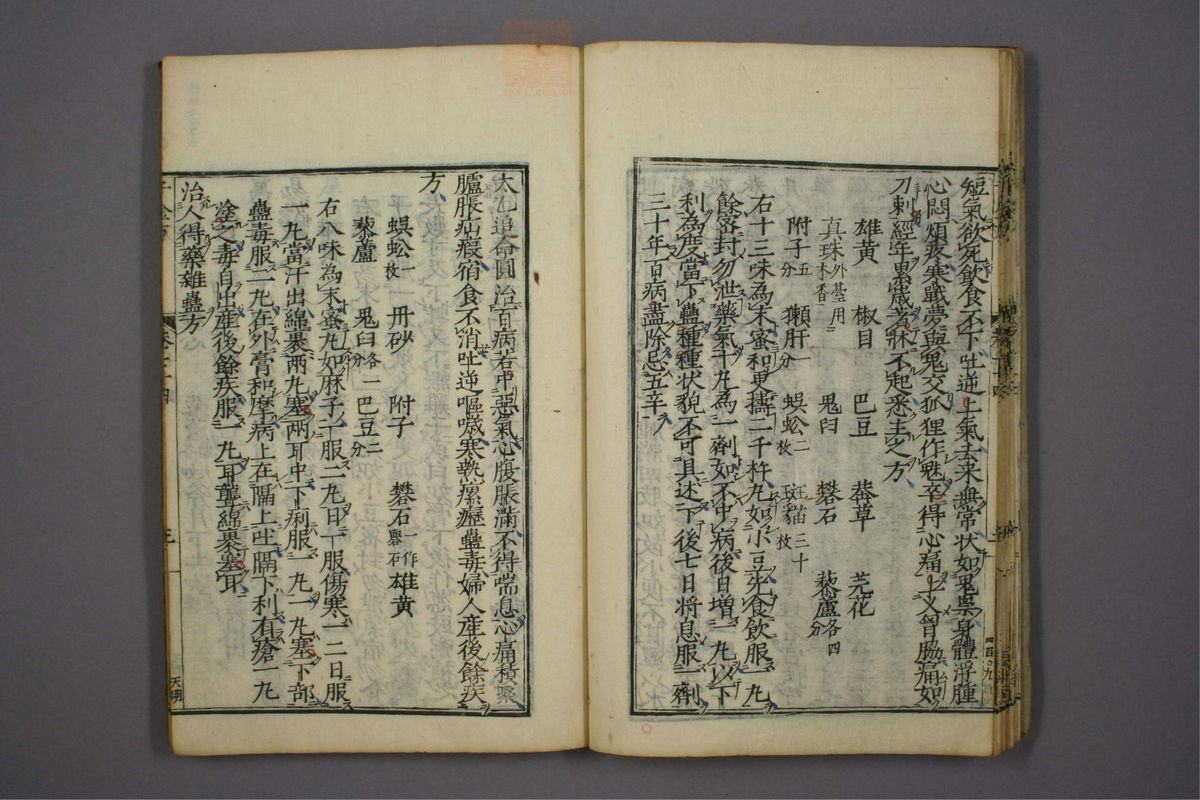 短氣欲死飲食不下吐逆上氣去来無常状如鬼祟身體浮腫
心悶煩疼寒戰夢與鬼交狐狸作魅卒得心痛上叉胷脇痛如
刀刺經年累歳著牀不起悉主之方
雄黄 椒目 巴豆 莽草 芫花
真珠木香外臺用 鬼臼 礬石 藜蘆各四分
附子五分 獺肝一分 蜈蚣二枚 斑猫三十枚
右十三味為末蜜和更擣二千杵丸如小豆先食飲服一丸
餘宻封勿泄藥氣十丸為一劑如不中病後日増一丸以下
利為度當下蠱種種状貌不可具述下後七日将息服一劑
三十年百病盡除忌五辛
太一追命圓治百病若中惡氣心腹脹滿不得喘息心痛積聚
臚脹疝瘕宿食不消吐逆嘔噦寒熱瘰癧蠱毒婦人産後餘疾
方
蜈蚣一枚 丹砂 附子 礬石一作礜石 雄黄
藜蘆 鬼臼各一分 巴豆二分
右八味為末蜜丸如麻子一服二丸日一服傷寒一二日服
一丸當汗出綿裹兩丸塞兩耳中下痢服一丸一丸塞下部
蠱毒服二丸在外膏和摩病上在膈上吐膈下利有瘡一丸
塗之毒自出産後餘疾服一丸耳聾綿裹塞耳
治人得藥雜蠱方